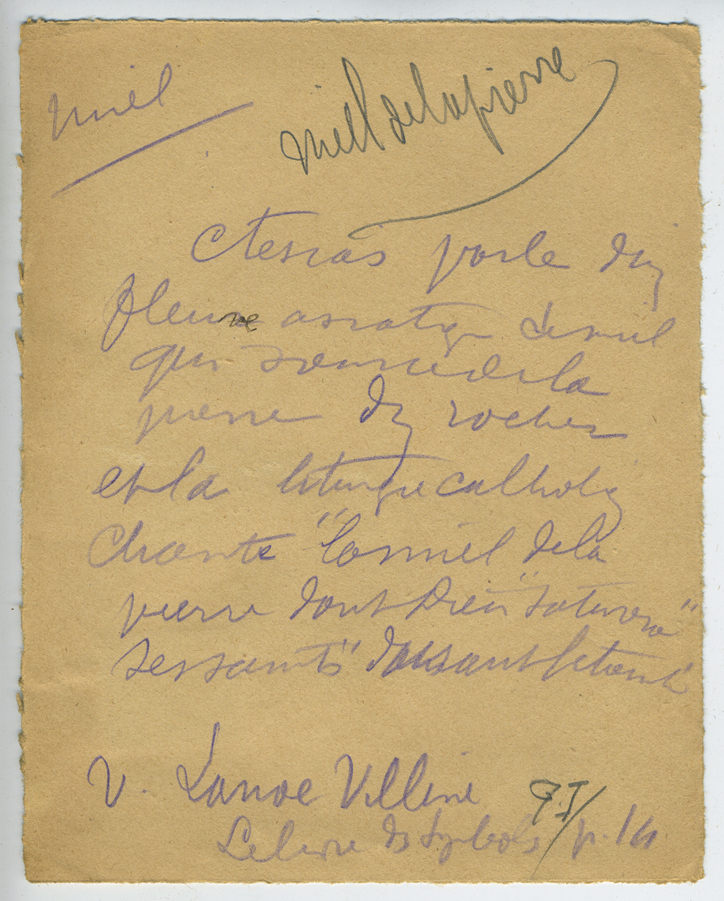 miel
miel de la pierre
Ctesias parle d'un
fleuve asiatiqu de miel
qui source de la
pierre du rocher
et la liturgie catholiq
chante "le miel de la
pierre dont Dieu "saturera"
ses saints" dans
V. Lanoe Villène
Le livre ds symbols T I/ p. 14